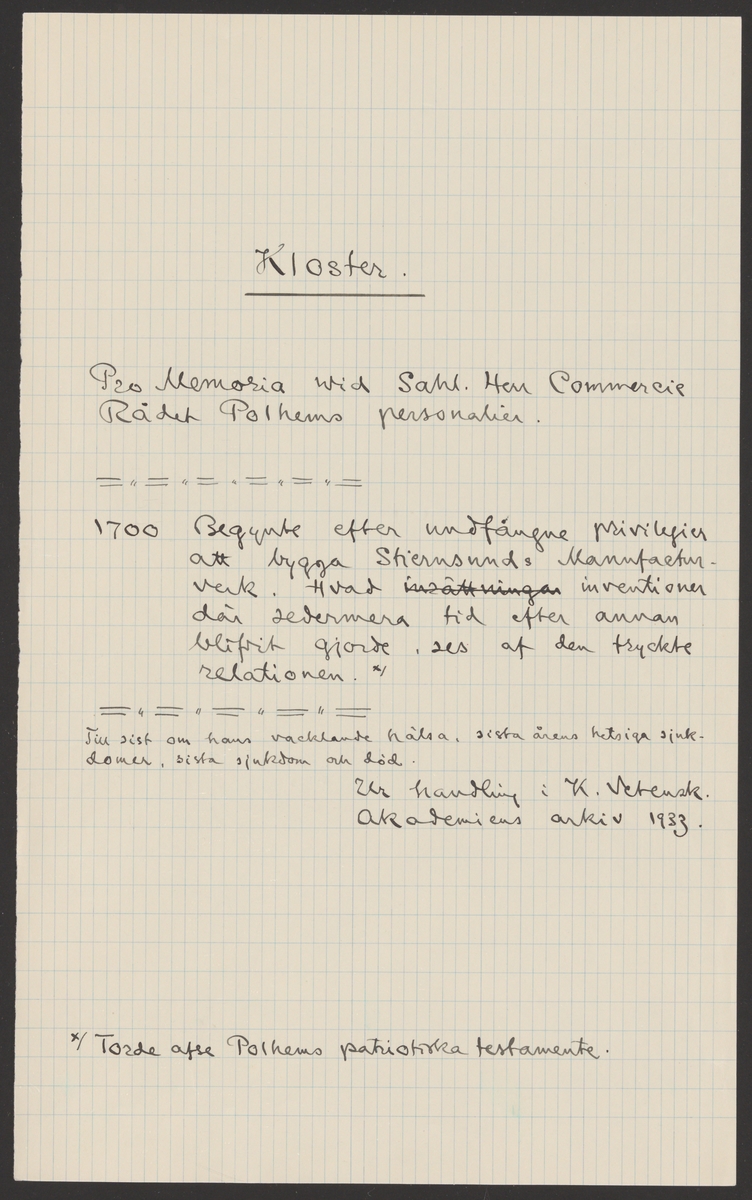 Kloster.
Pro Memoria wid Sahl. Herr Commercie
Rådet Polhems personalier.
= " = " = " = " = " =
1700 Begynte efter undfångne privilegier
att bygga Stiernsunds Manufactur-
verk. Hvad insättningar inventioner
där sedermera tid efter annan
blifvit gjorde, ses af den tryckte
relationen. x/
= " = " = " = " =
Till sist om hans vacklande hälsa, sista årens hetsiga sjuk-
domer, sista sjukdom och död.
Ur handling i K. Vetensk.
Akademiens arkiv 1933.
x/ Torde afse Polhems patriotiska testamente.